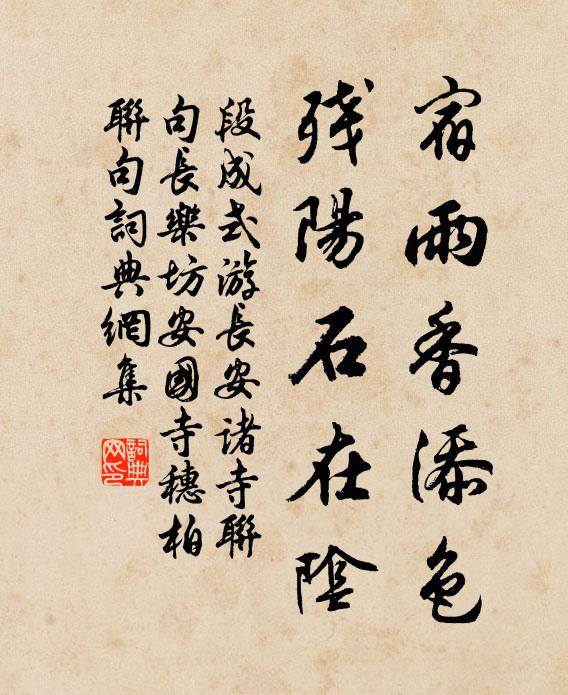 宿雨香添色
殘陽石在陰
段成式游長安诸寺聯
句長樂坊安國寺穗柏
聯句詞典網集
詞典网印